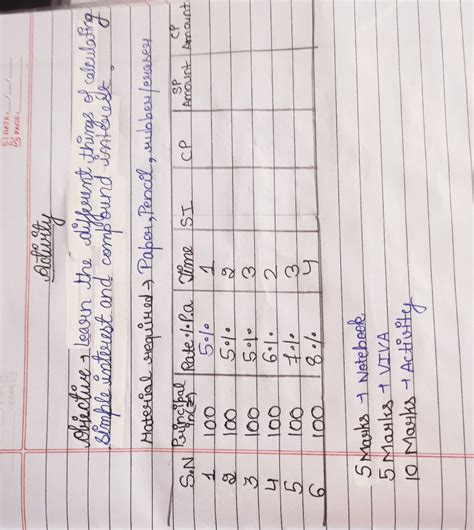 DATE: __/__/__
PAGE:
Activity
Objective → Learn the different things of calculating
Simple interest and compound interest.
Material required → Paper, Pencil, rubber/eraser
S.N Principal (₹) Rate % P.a Time SI CP SP Amount CP Amount
1 100 5% 1
2 100 5% 2
3 100 5% 3
4 100 6% 2
5 100 7% 3
6 100 8% 4
5 Marks → Notebook
5 Marks → VIVA
10 Marks → Activity